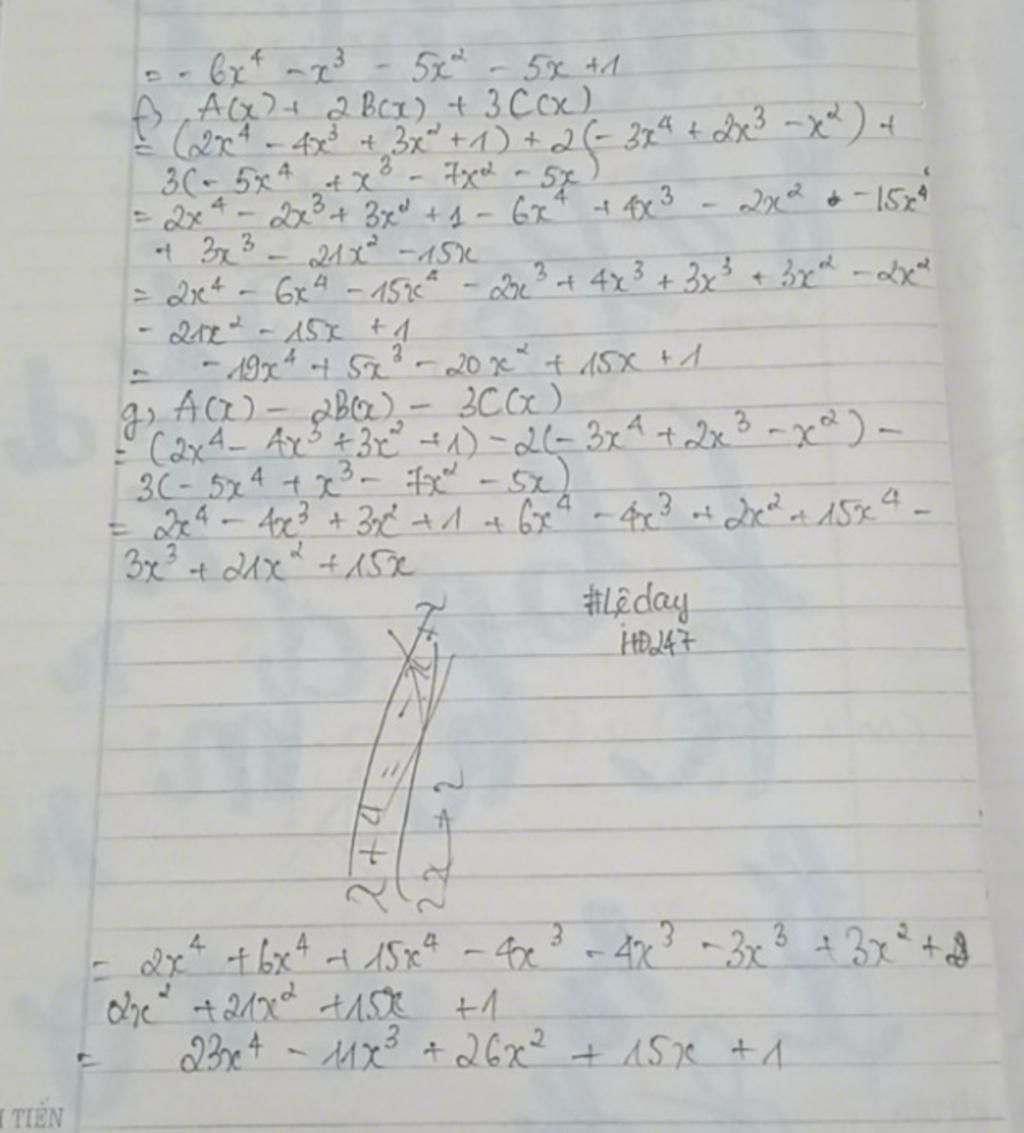 = - 6x⁴ - x³ - 5x² - 5x + 1
f) A(x) + 2B(x) + 3C(x)
= (2x⁴ - 4x³ + 3x² + 1) + 2(- 3x⁴ + 2x³ - x²) +
3(- 5x⁴ + x³ - 7x² - 5x)
= 2x⁴ - 2x³ + 3x² + 1 - 6x⁴ + 4x³ - 2x² + -15x⁴
+ 3x³ - 21x² - 15x
= 2x⁴ - 6x⁴ - 15x⁴ - 2x³ + 4x³ + 3x³ + 3x² - 2x²
- 21x² - 15x + 1
= - 19x⁴ + 5x³ - 20x² + 15x + 1
g) A(x) - 2B(x) - 3C(x)
= (2x⁴ - 4x³ + 3x² + 1) - 2(- 3x⁴ + 2x³ - x²) -
3(- 5x⁴ + x³ - 7x² - 5x)
= 2x⁴ - 4x³ + 3x² + 1 + 6x⁴ - 4x³ + 2x² + 15x⁴ -
3x³ + 21x² + 15x
#Lệday
HD247
= 2x⁴ + 6x⁴ + 15x⁴ - 4x³ - 4x³ - 3x³ + 3x² +
2x² + 21x² + 15x + 1
= 23x⁴ - 11x³ + 26x² + 15x + 1
TIẾN